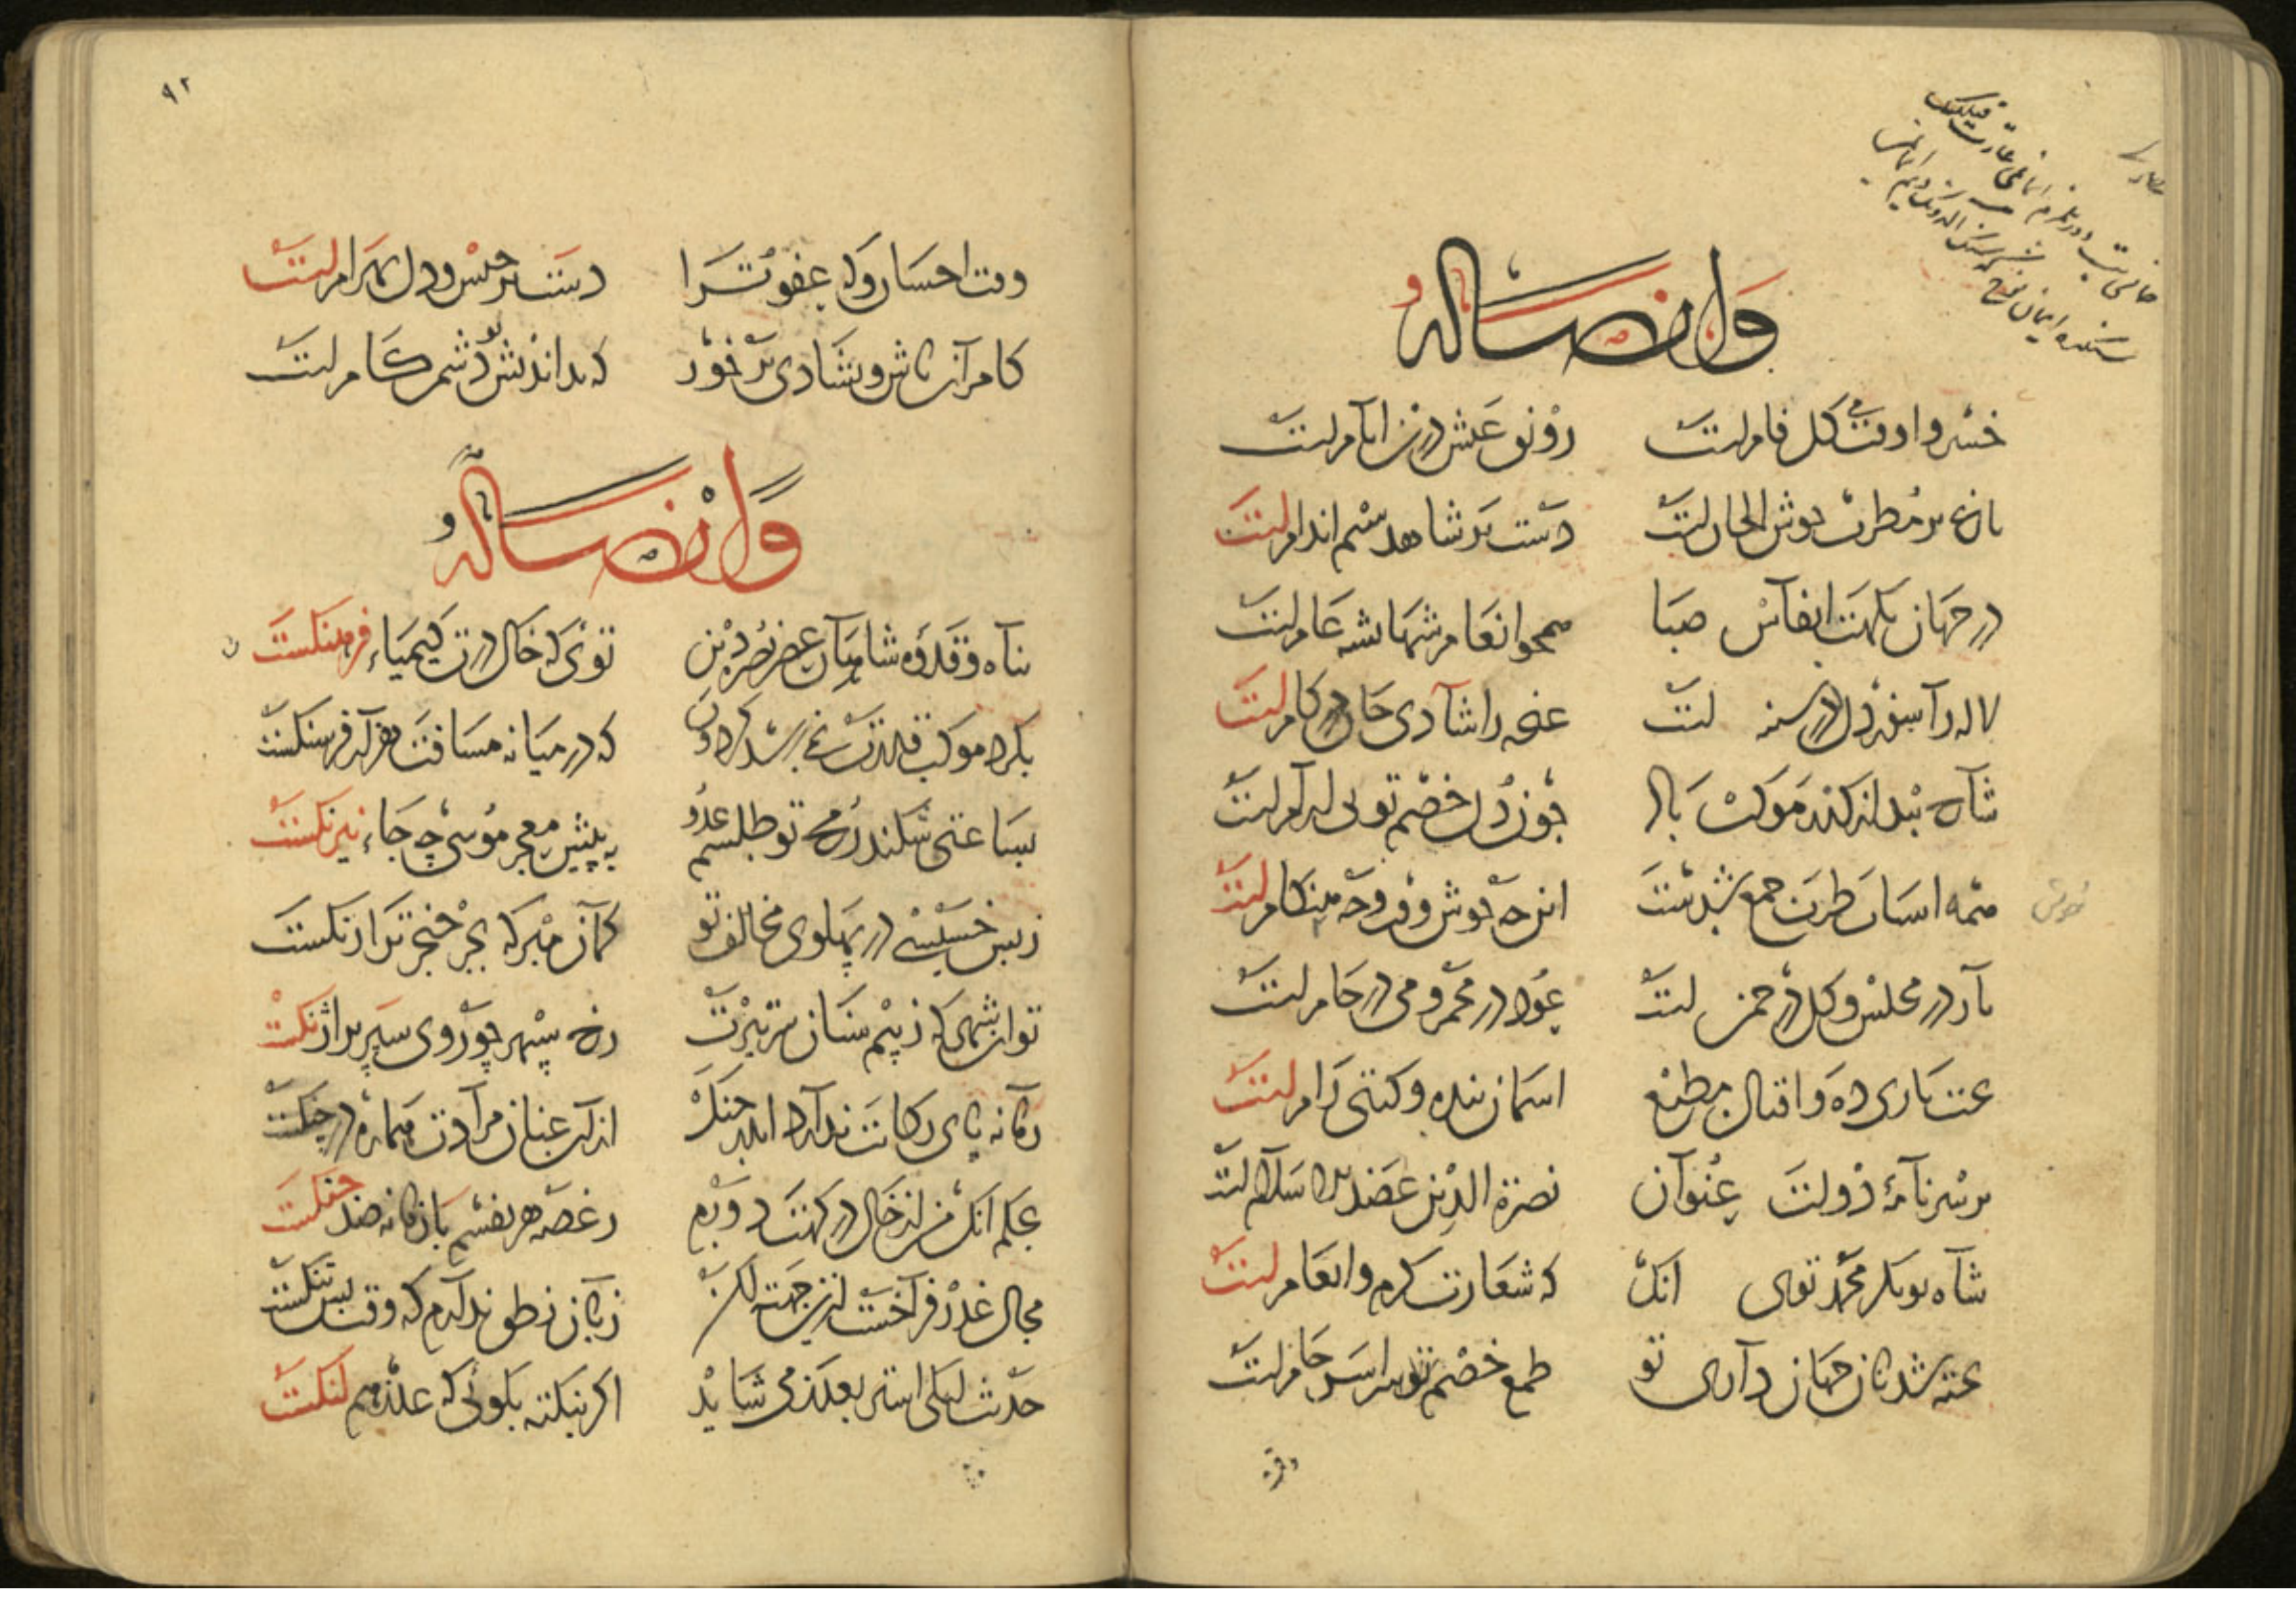 وله ایضا
خسروا وقت می گل فامست رونق عیش درین ایامست
باغ پر مطرب خوش الحانست دست بر شاهد سیم اندامست
در جهان نکهت انفاس صبا همچو انعام شهانشه عامست
لاله را سفره دل در سینه است غنچه را شادی جان در کامست
شاه نبدلز کند موکب باز چون دل خصم تو بی آرامست
همه اسباب طرب جمع شدست این چه خوش وقت و چه هنگامست
یار در مجلس و گل در چمن است عود در مجمر و می در جامست
بخت یاری ده و اقبال مطیع اسمان بنده و گیتی رامست
بر سر نامهٔ دولت عنوان نصرة الدین عضد الاسلامست
شاه بوبکر محمد توی انک که شعارت کرم و انعامست
پخته شد نان جهان داری تو طمع خصم تو سراسر خامست
وقت
۹۲
وقت احسان و که عفو ترا دست برجیس و دل بهرامست
کام ران باش و بشادی بر خور که بداندیش تو دشمن کامست
وله ایضا
پناه و قدوه شاهان عصر نصرة دین توئی که خاک درت کیمیاء فرهنگست
بگرد موکب قدرت نمی رسد گردون که در میانه مسافت هزار فرسنگست
بساعتی شکند رمح تو طلسم عدو به پیش معجز موسی چه جاء نیرنگست
ز بس که خسبد در پهلوی مخالف تو گمان مبر که بجز خنجر ترا زنگست
تو ان شهی که ز بیم سنان سر تیزت رخ سپهر چو روی سپر پر آژنگست
زمانه پای رکابت ندارد اندر جنگ ازان عنان مرادت هماره در چنگست
بحکم انک من از خاک درگهت دورم ز غصه هر نفسم با زمانه صد جنگست
مجال عذر فراخست ازین جهت لیکن زبان نطق ندارم که وقت بس تنگست
حدیث لیلی استر بعد می شاید اگر نبکته بگوئی که عذر هم لنگست